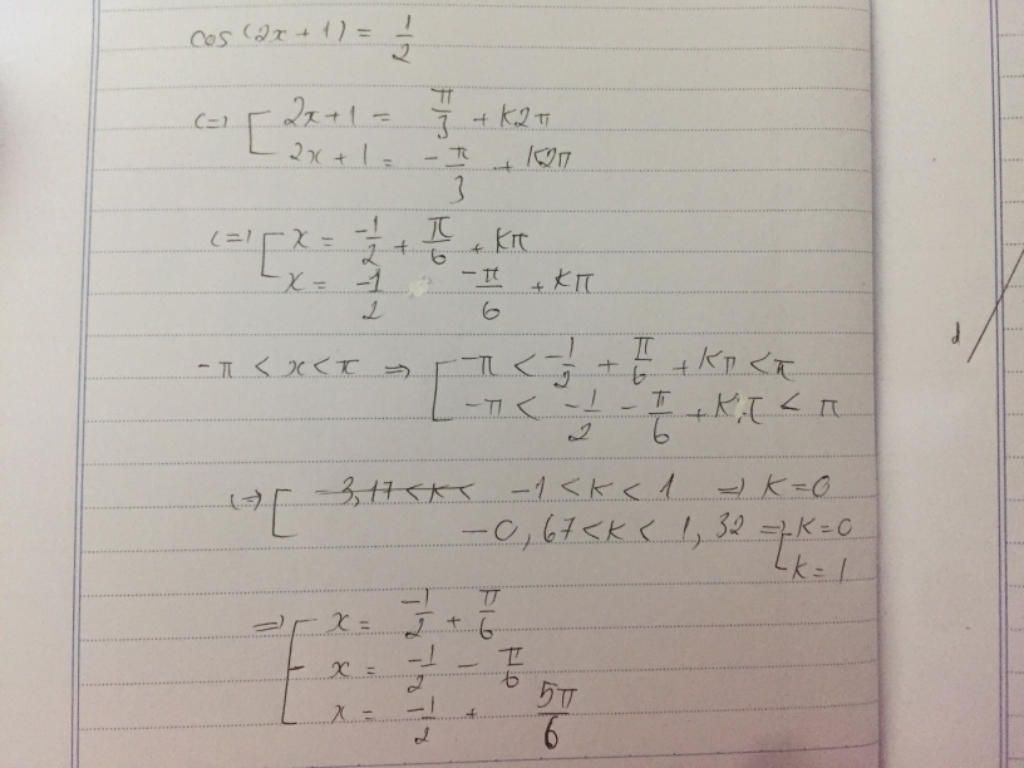 cos (2x + 1) = 1/2
(=) [ 2x + 1 = π/3 + K2π
2x + 1 = -π/3 + K2π
(=) [ x = -1/2 + π/6 + Kπ
x = -1/2 -π/6 + Kπ
-π < x < π => [ -π < -1/2 + π/6 + Kπ < π
-π < -1/2 - π/6 + Kπ < π
(=) [ -3,17 < K < -1 < K < 1 => K = 0
-0,67 < K < 1,32 => [ K = 0
K = 1
=> [ x = -1/2 + π/6
x = -1/2 - π/6
x = -1/2 + 5π/6
d